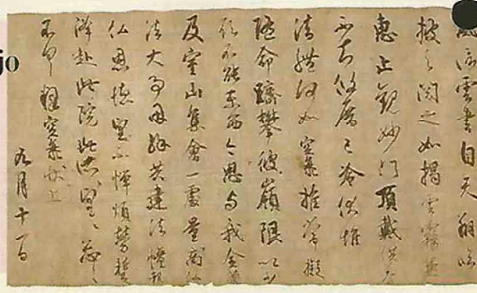 信雲書自天翔臨
披之閲之如掲雲霧兼
恵止観妙門頂戴供養
不知攸厝已冷伏惟
法體何如空海推常擬
随命躋攀彼嶺限以少
願不能東西今思与我金
及室山集會一處量商仏
法大事因縁共建法幢報
仏恩徳望不憚煩勞蹔
降赴此院此所望々忩々
不具釋空海状上
九月十一日
jo